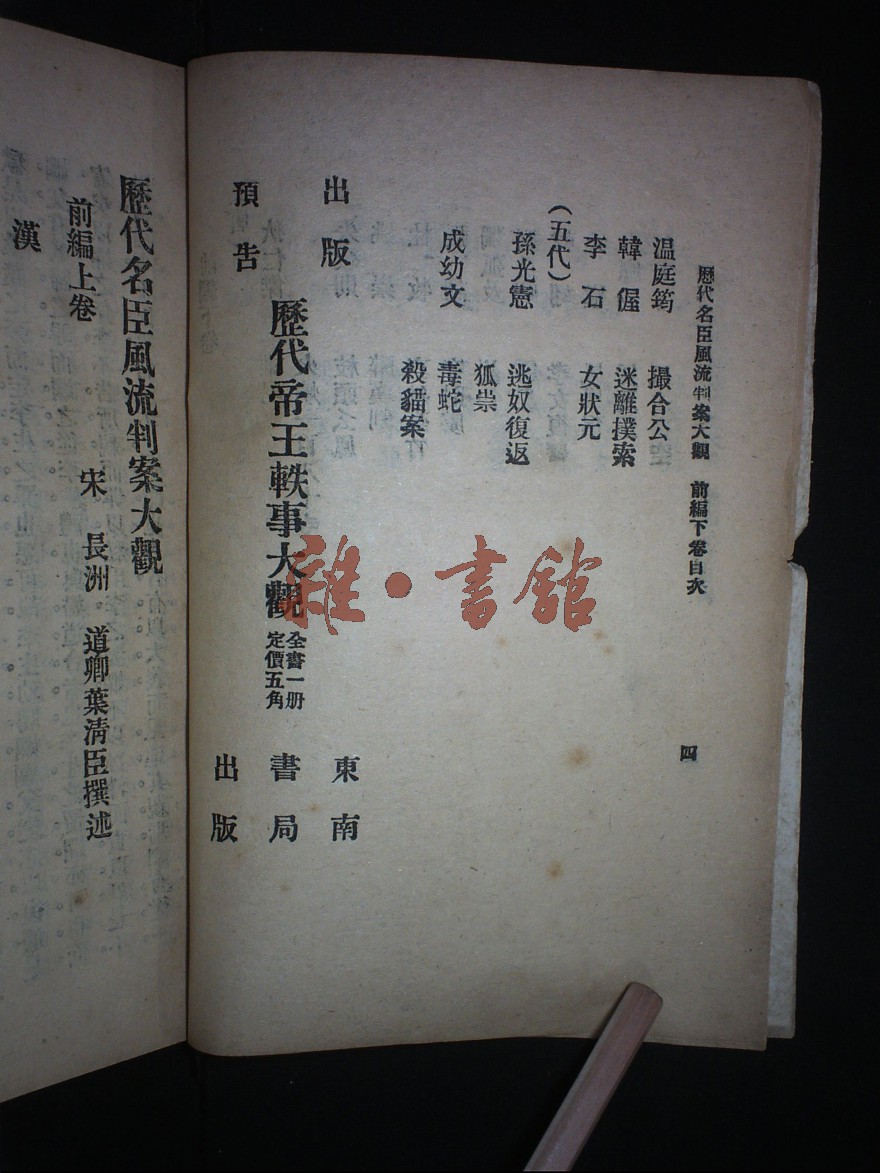 歷代名臣風流判案大觀 前編下卷目次
四
温庭筠 撮合公
韓偓 迷離撲索
李石 女狀元
(五代)
孫光憲 逃奴復返
狐祟
成幼文 毒蛇
殺貓案
出版
預告
歷代帝王軼事大觀
全書一册
定價五角
東南
書局
出版
雜·書館
歷代名臣風流判案大觀
宋 長洲 道卿葉清臣撰述
前編上卷
漢